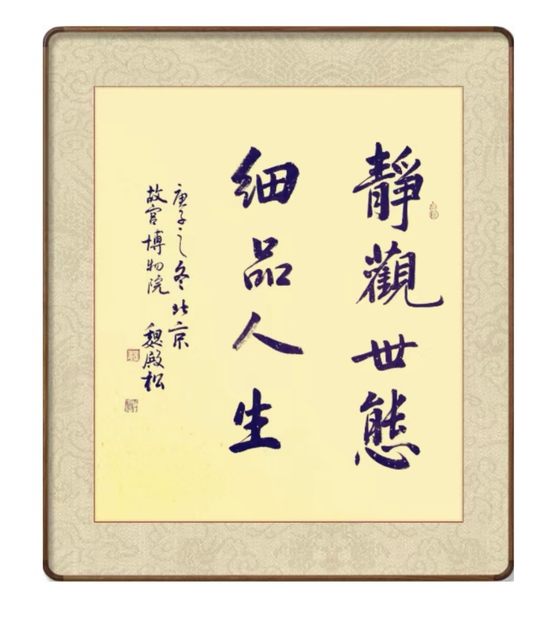 靜觀世態
細品人生
庚子之冬北京
故宮博物院 魏殿松